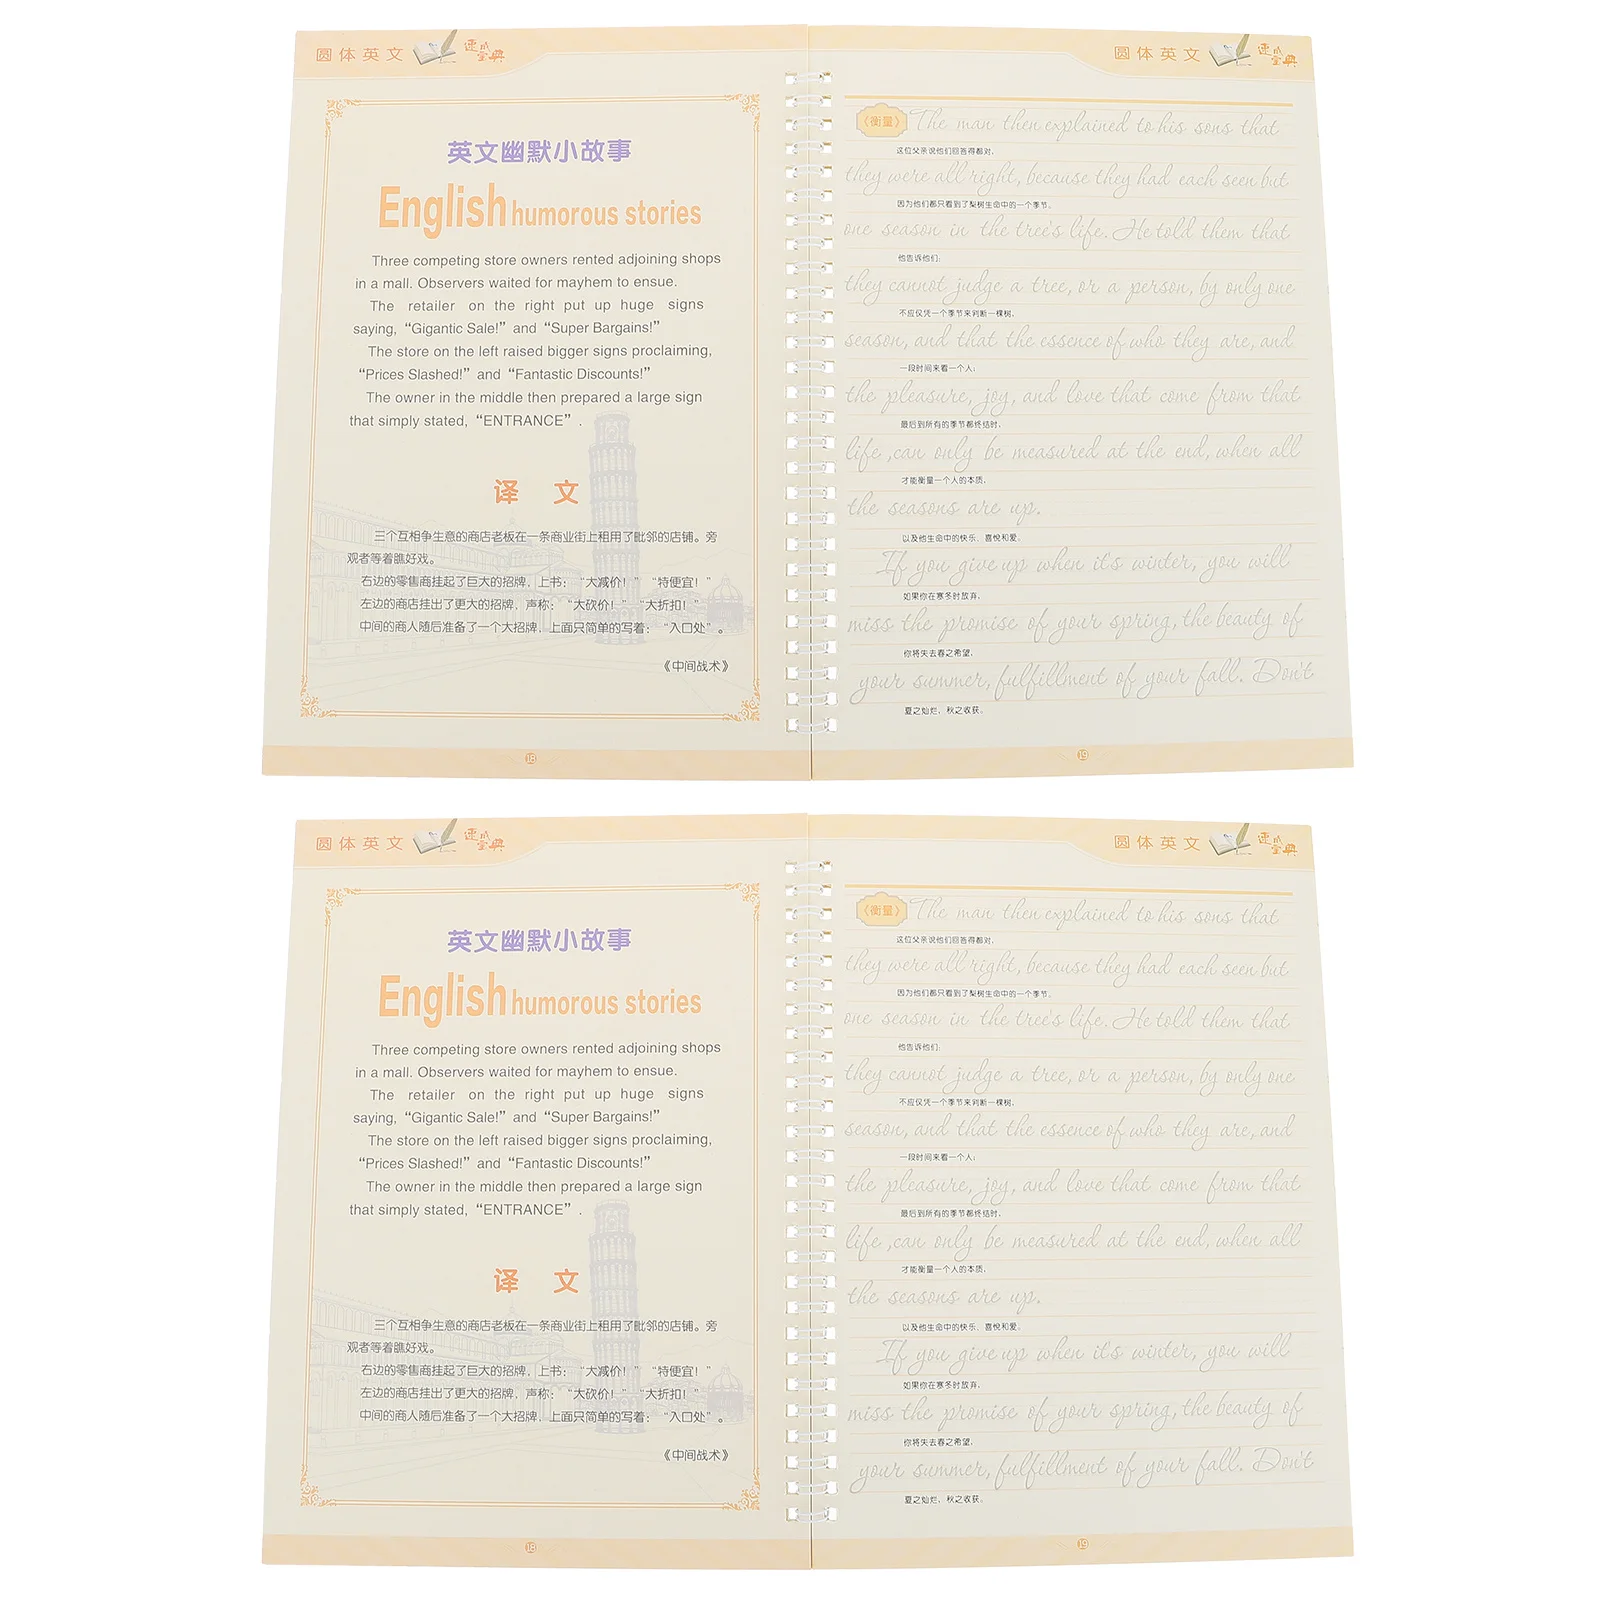 圆体英文 速成宝典
英文幽默小故事
English humorous stories
Three competing store owners rented adjoining shops
in a mall. Observers waited for mayhem to ensue.
The retailer on the right put up huge signs
saying, “Gigantic Sale!” and “Super Bargains!”
The store on the left raised bigger signs proclaiming,
“Prices Slashed!” and “Fantastic Discounts!”
The owner in the middle then prepared a large sign
that simply stated, “ENTRANCE”.
译 文
三个互相争生意的商店老板在一条商业街上租用了毗邻的店铺。旁
观者等着瞧好戏。
右边的零售商挂起了巨大的招牌，上书：“大减价！”“特便宜！”
左边的商店挂出了更大的招牌，声称：“大砍价！”“大折扣！”
中间的商人随后准备了一个大招牌，上面只简单的写着：“入口处”。
《中间战术》
18
圆体英文 速成宝典
《衡量》 The man then explained to his sons that
这位父亲说他们回答得都对，
they were all right, because they had each seen but
因为他们都只看到了梨树生命中的一个季节。
one season in the tree's life. He told them that
他告诉他们：
they cannot judge a tree, or a person, by only one
不应仅凭一个季节来判断一棵树，
season, and that the essence of who they are, and
一段时间来看一个人；
the pleasure, joy, and love that come from that
最后到所有的季节都终结时，
life ,can only be measured at the end, when all
才能衡量一个人的本质，
the seasons are up.
以及他生命中的快乐、喜悦和爱。
If you give up when it's winter, you will
如果你在寒冬时放弃，
miss the promise of your spring, the beauty of
你将失去春之希望，
your summer, fulfillment of your fall. Don't
夏之灿烂，秋之收获。
19
圆体英文 速成宝典
英文幽默小故事
English humorous stories
Three competing store owners rented adjoining shops
in a mall. Observers waited for mayhem to ensue.
The retailer on the right put up huge signs
saying, “Gigantic Sale!” and “Super Bargains!”
The store on the left raised bigger signs proclaiming,
“Prices Slashed!” and “Fantastic Discounts!”
The owner in the middle then prepared a large sign
that simply stated, “ENTRANCE”.
译 文
三个互相争生意的商店老板在一条商业街上租用了毗邻的店铺。旁
观者等着瞧好戏。
右边的零售商挂起了巨大的招牌，上书：“大减价！”“特便宜！”
左边的商店挂出了更大的招牌，声称：“大砍价！”“大折扣！”
中间的商人随后准备了一个大招牌，上面只简单的写着：“入口处”。
《中间战术》
18
圆体英文 速成宝典
《衡量》 The man then explained to his sons that
这位父亲说他们回答得都对，
they were all right, because they had each seen but
因为他们都只看到了梨树生命中的一个季节。
one season in the tree's life. He told them that
他告诉他们：
they cannot judge a tree, or a person, by only one
不应仅凭一个季节来判断一棵树，
season, and that the essence of who they are, and
一段时间来看一个人；
the pleasure, joy, and love that come from that
最后到所有的季节都终结时，
life ,can only be measured at the end, when all
才能衡量一个人的本质，
the seasons are up.
以及他生命中的快乐、喜悦和爱。
If you give up when it's winter, you will
如果你在寒冬时放弃，
miss the promise of your spring, the beauty of
你将失去春之希望，
your summer, fulfillment of your fall. Don't
夏之灿烂，秋之收获。
19